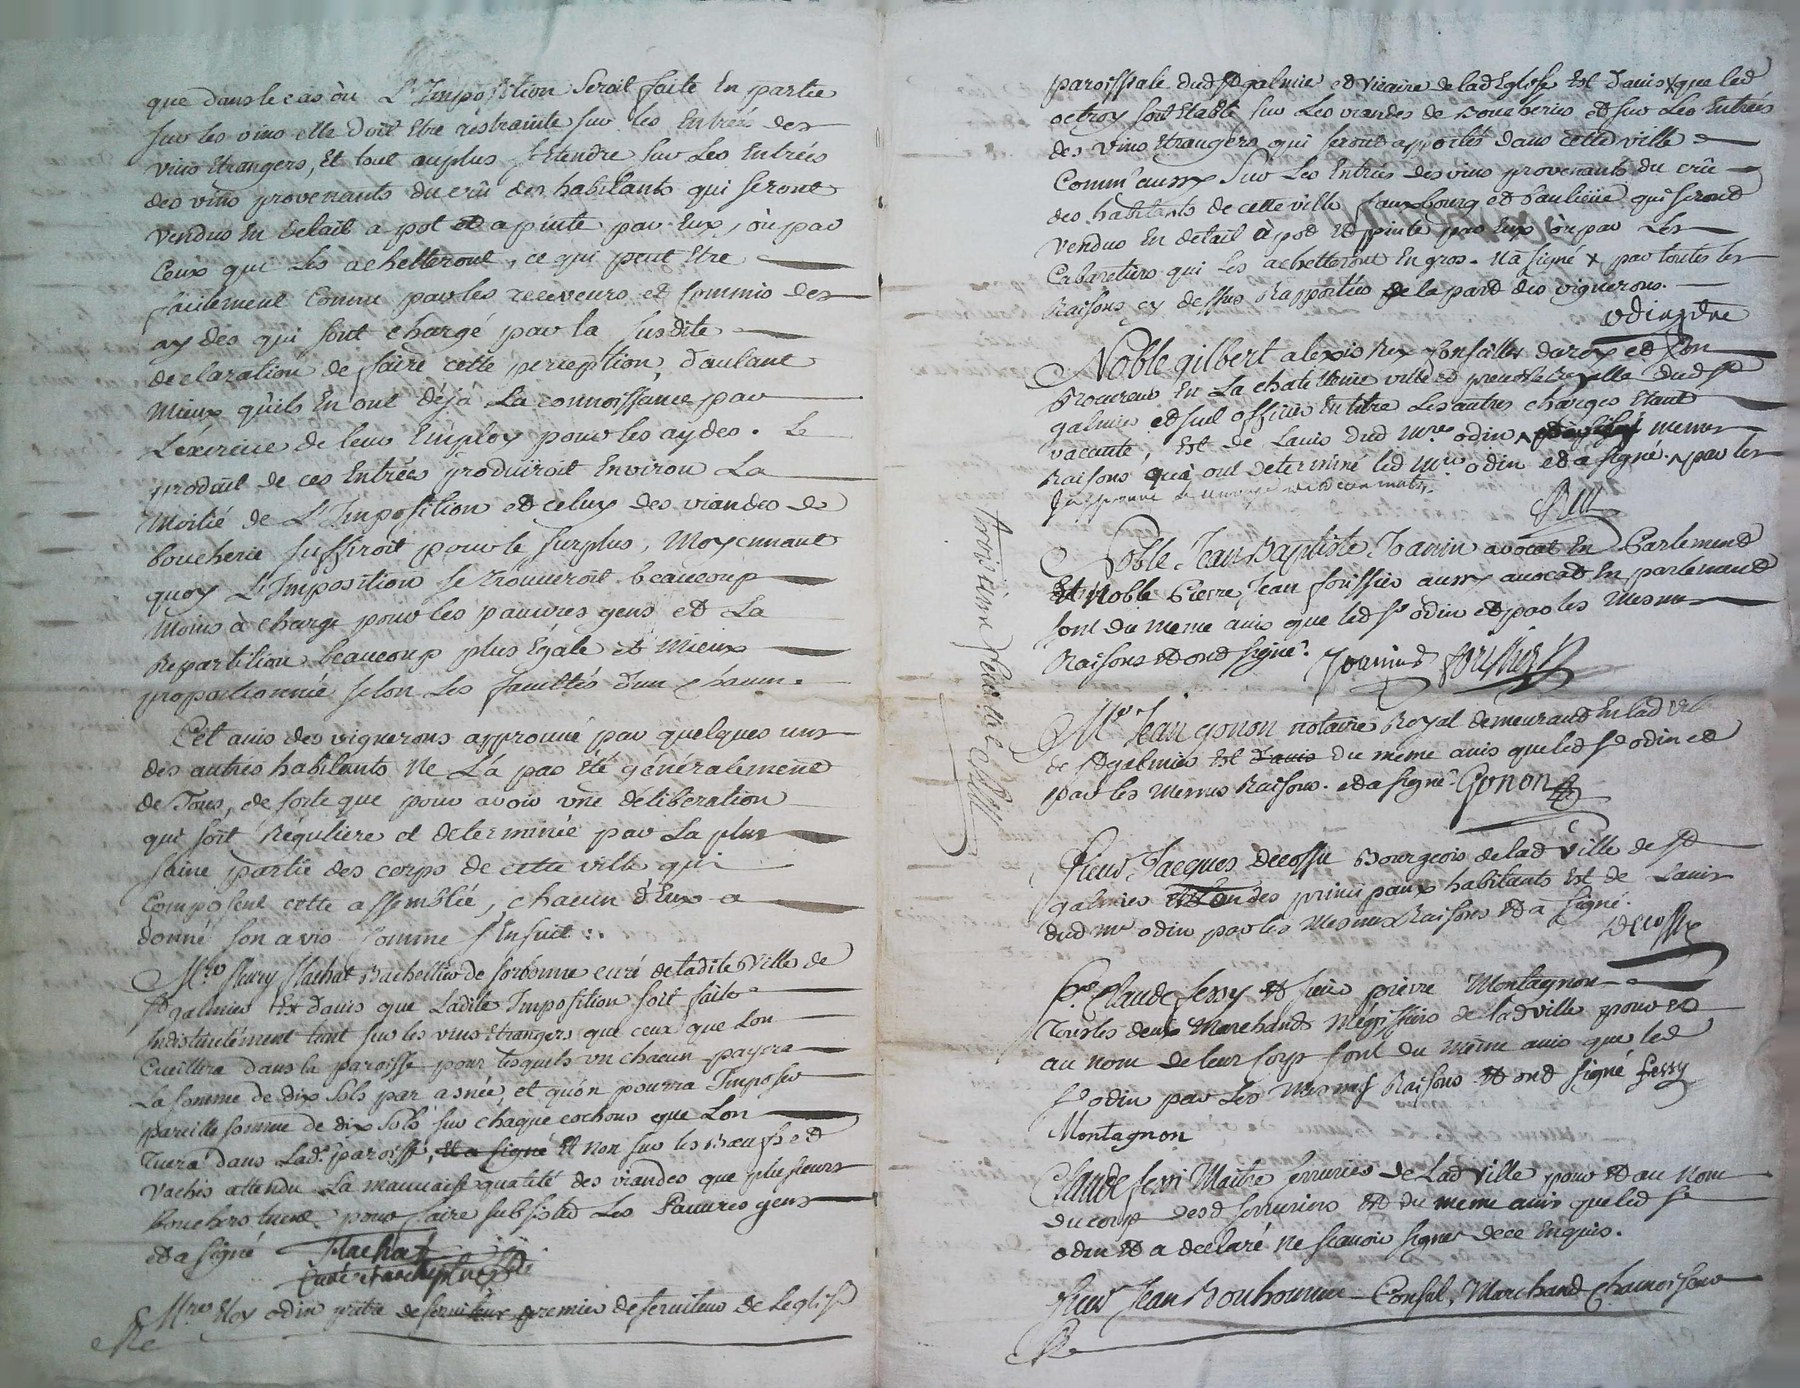 que dans le cas où L'Imposition Seroit faite En partie
sur les vins elle doit Etre restrainte sur les Entrées des
vins Etrangers, Et tout au plus s'Etendre sur Les Entrées
des vins provenants du crû des habitants qui seront
vendus En detail a pot et a pinte par Eux, où par
Ceux qui Les achetteront, ce qui peut Etre
facilement Connu par les receveurs et Commis des
aydes qui sont chargé par la susdite
declaration de faire cette perception, d'autant
mieux qu'ils En ont déjà La connoissance par
L'exercice de leur Employ pour les aydes. Le
produit de ces Entrées produiroit Environ La
moitié de L'Imposition et celuy des viandes de
boucherie suffiroit pour le surplus, Moyennant
quoy L'Imposition se trouveroit beaucoup
moins à charge pour les pauvres gens et La
Repartition beaucoup plus Egale et Mieux
proportionnée selon Les facultés d'un chacun.
Cet avis des vignerons approuvé par quelques uns
des autres habitants Ne L'a pas été généralement
de Tous, de sorte que pour avoir une déliberation
qui soit Réguliere et determinée par La plus
saine partie des corps de cette ville qui
Composent cette assemblée, chacun d'Eux a
donné son avis Comme s'Ensuit :.
Mre fleury flachat Bachellier de sorbonne curé de ladite Ville de
St galmier Est d'avis que Ladite Imposition soit faite
Indistinctement tant sur les vins Etrangers que ceux que Lon
Cueillira dans la paroisse pour lesquels un chacun payera
La somme de dix sols par asnée, et qu'on pourra Imposer
pareille somme de dix sols sur chaque cochons que Lon
tuera dans Lad. paroisse, et a signé Et Non sur les Bœufs et
vaches attendu La mauvaise qualité des viandes que plusieurs
bouchers tuent pour faire subsister Les Pauvres gens
et a signé Flachat
Curé
Mre Eloy odin prêtre deserviteur premier deserviteur de Leglise
paroissiale dud St galmier et vicaire de lad Eglise Est d'avis x que led
octroy soit Etabli sur Les viandes de Boucheries et sur Les Entrées
des vins Etrangers qui seront apportés dans cette ville
Comm'aussy sur Les Entrées des vins provenants du crû
des habitants de cette ville fauxbourg et banlieüe qui seront
vendus En détail à pot Et pinte par Eux où par Les
Cabaretiers qui Les achetteront En gros. Et a signé x par toutes les
Raisons cy dessus Rapportées de la part des vignerons.
odin ptre
Noble gilbert alexis Rey Conseiller du roy et son
Procureur En La chatellenie ville et prevosté dud St
galmier et seul officier En titre Les autres charges Etant
vacantes, Est de L'avis dud Mre odin memes
Raisons qui ont determiné led Mre odin et a signé. par les
Rey
Noble Jean Baptiste Joanin avocat En Parlement
Et Noble Pierre Jean forissier aussy avocat En parlement
sont du meme avis que led Sr odin et par les Memes
Raisons et ont signé. Joanin forissier
Me Jean gonon notaire Royal demeurant En lad ville
de St galmier Est d'avis du même avis que led Sr odin et
par les Memes Raisons. et a signé. Gonon
Sieur Jacques decosse Bourgeois de lad Ville de St
galmier Et L'un des principaux habitants Est de L'avis
dud Mre odin par les Memes Raisons et a signé.
decosse
Sr Claude fessy et sieur pierre Montagnon
Tous les deux Marchands Megissiers de lad ville pour et
au nom de leur Corps sont du même avis que led
Sr odin par Les Memes Raisons et ont signé fessy
Montagnon
Claude ferri Maitre serrurier de Lad ville pour et au Nom
du corps desd serruriers Est du même avis que led Sr
odin et a declaré Ne sçavoir signer de ce Enquis.
Sieur Jean Bonhomme Consul, Marchand Chamoiseur